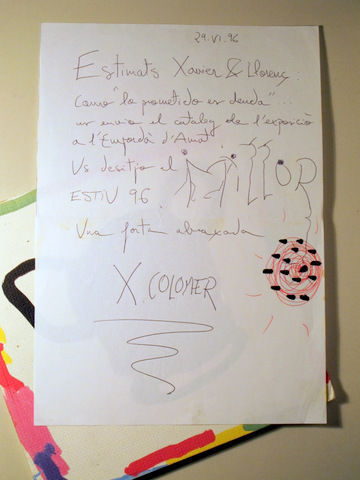 29.VI.96
Estimats Xavier & Llorenç:
Como "lo prometido es deuda"...
us envio el catàleg de l'exposició
a l'Empordà d'Amat.
Us desitjo el MILLOR
ESTIU 96.
Una forta abraxada
X. COLOMER